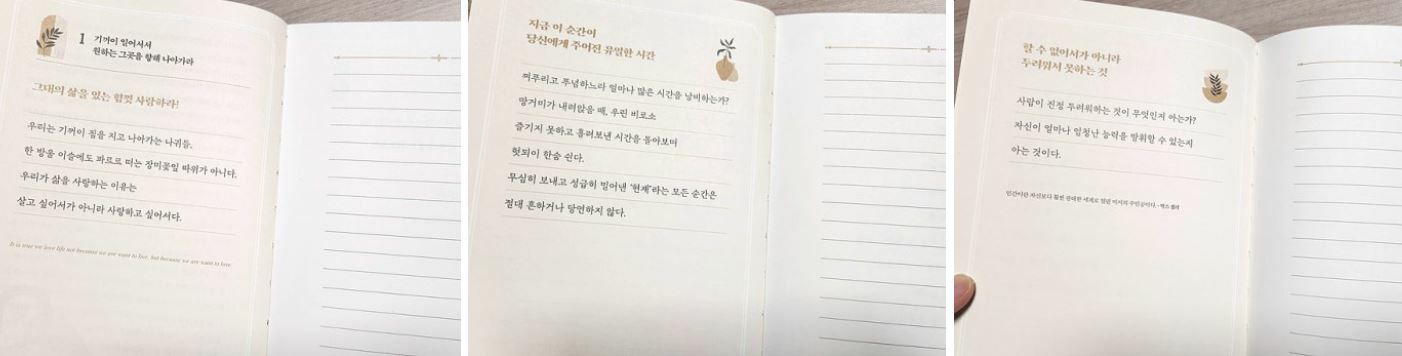 1 기꺼이 일어서서
원하는 그곳을 향해 나아가라
그대의 삶을 있는 힘껏 사랑하라!
우리는 기꺼이 짐을 지고 나아가는 나귀들.
한 방울 이슬에도 파르르 떠는 장미꽃잎 따위가 아니다.
우리가 삶을 사랑하는 이유는
살고 싶어서가 아니라 사랑하고 싶어서다.
It is true we love life not because we are want to live, but because we are want to love.
지금 이 순간이
당신에게 주어진 유일한 시간
찌푸리고 푸념하느라 얼마나 많은 시간을 낭비하는가?
땅거미가 내려앉을 때, 우린 비로소
즐기지 못하고 흘려보낸 시간을 돌아보며
헛되이 한숨 쉰다.
무심히 보내고 성급히 밀어낸 '현재'라는 모든 순간은
절대 흔하거나 당연하지 않다.
할 수 없어서가 아니라
두려워서 못하는 것
사람이 진정 두려워하는 것이 무엇인지 아는가?
자신이 얼마나 엄청난 능력을 발휘할 수 있는지
아는 것이다.
인간이란 자신보다 훨씬 광대한 세계로 열린 미지의 수인공이다. - 막스 셸러